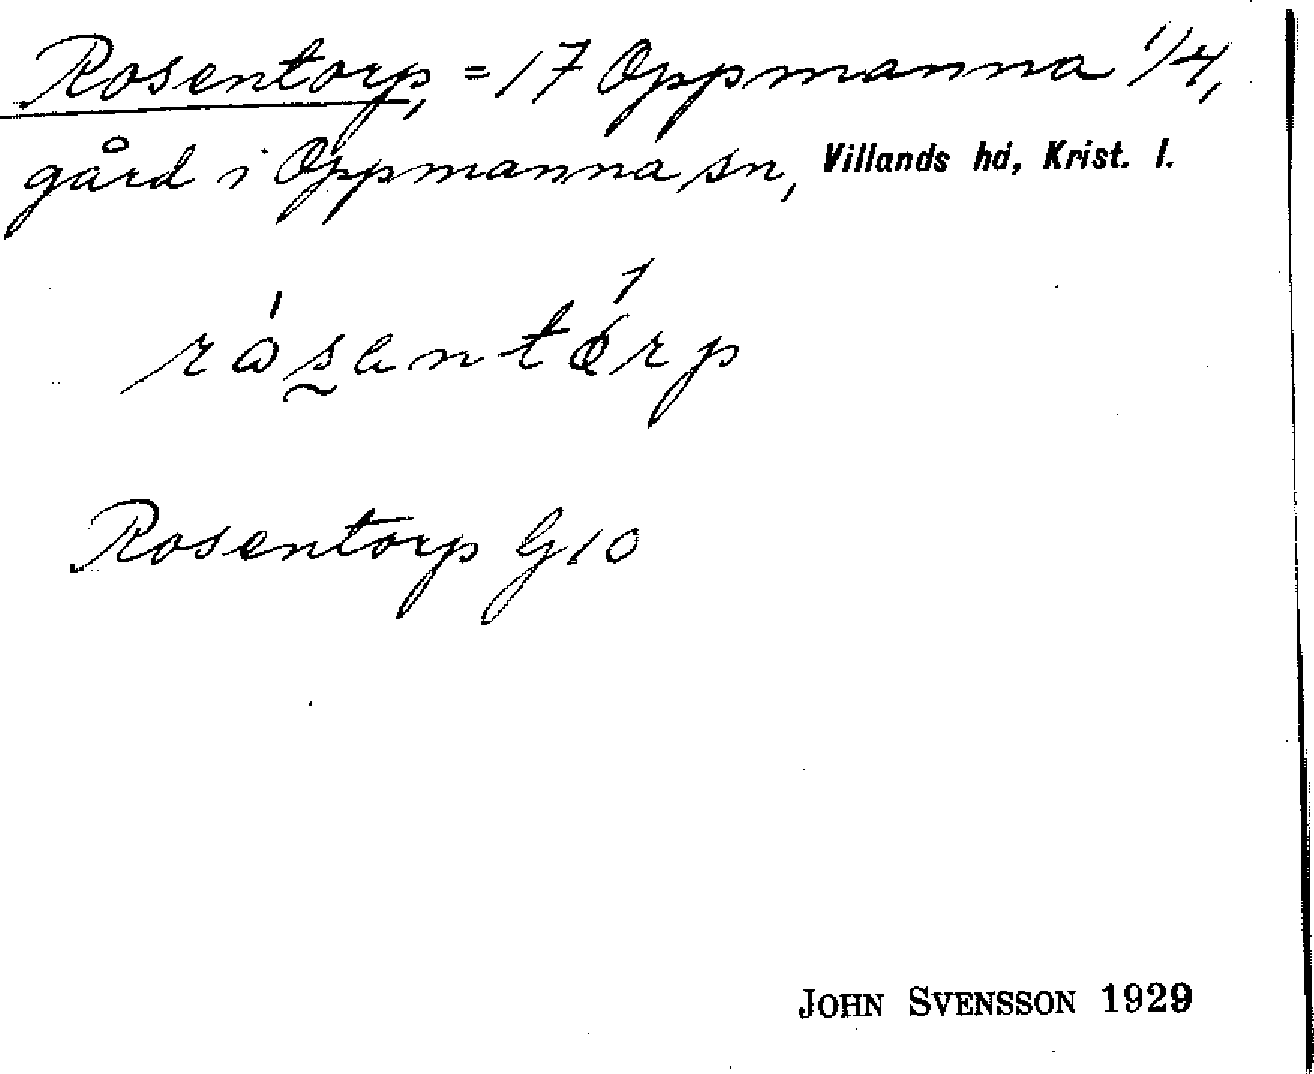 Rosentorp, = 17 Oppmanna 1/4,
gård i Oppmanna sn, Villands hd, Krist. l.
Rosentorp G10
JOHN SVENSSON 1929